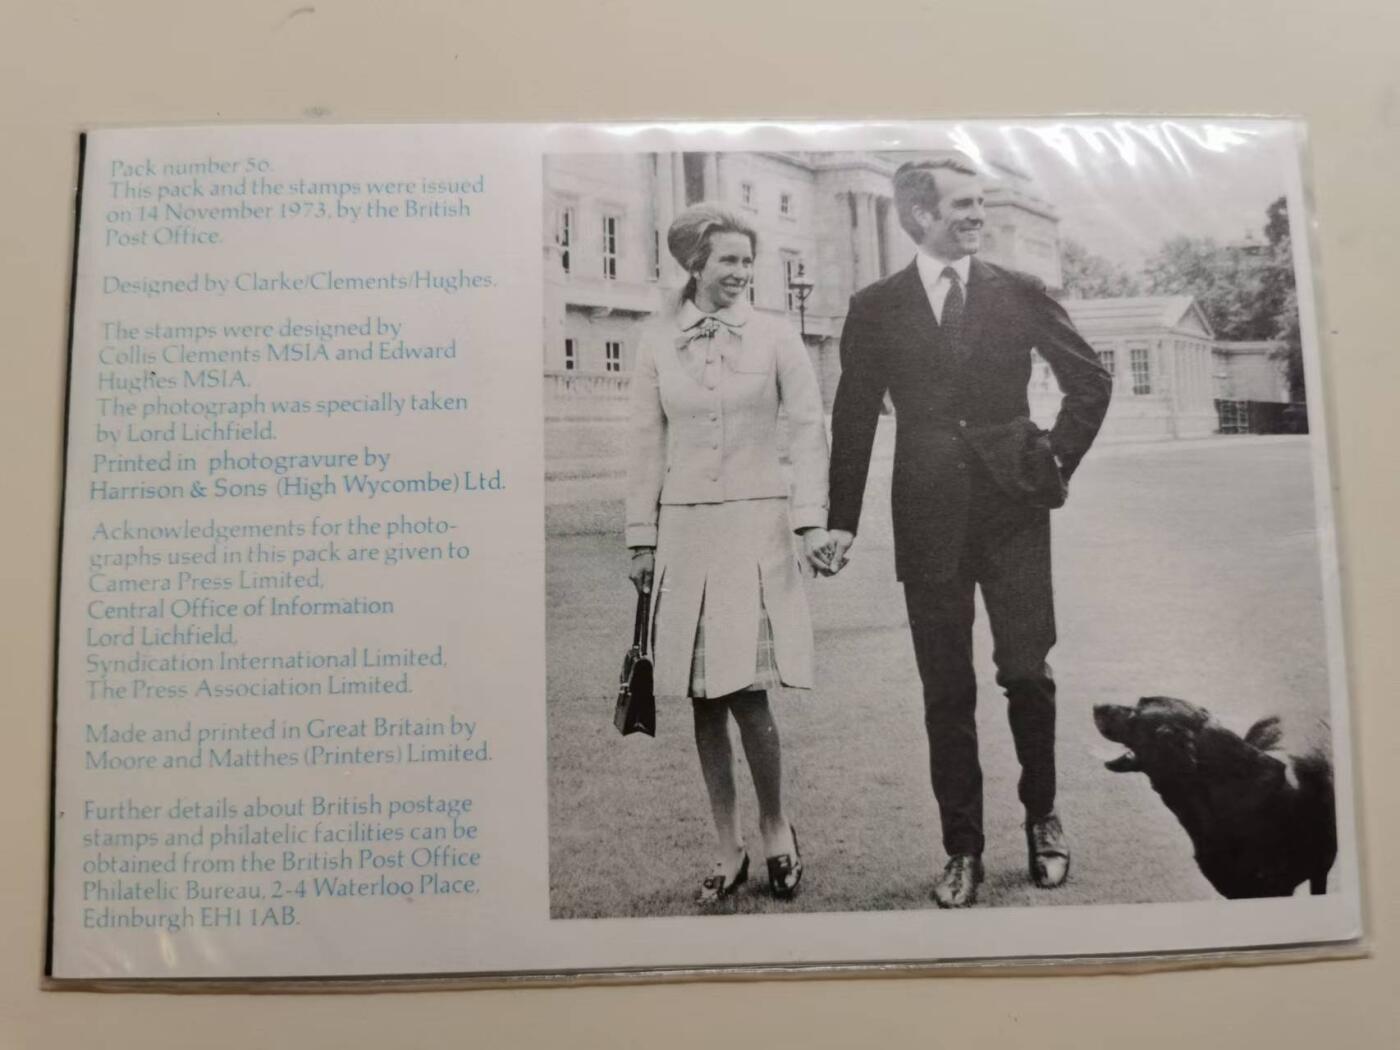 Pack number 56.
This pack and the stamps were issued
on 14 November 1973, by the British
Post Office.
Designed by Clarke/Clements/Hughes.
The stamps were designed by
Collis Clements MSIA and Edward
Hughes MSIA.
The photograph was specially taken
by Lord Lichfield.
Printed in photogravure by
Harrison & Sons (High Wycombe) Ltd.
Acknowledgements for the photo-
graphs used in this pack are given to
Camera Press Limited,
Central Office of Information
Lord Lichfield,
Syndication International Limited,
The Press Association Limited.
Made and printed in Great Britain by
Moore and Matthes (Printers) Limited.
Further details about British postage
stamps and philatelic facilities can be
obtained from the British Post Office
Philatelic Bureau, 2-4 Waterloo Place,
Edinburgh EH1 1AB.